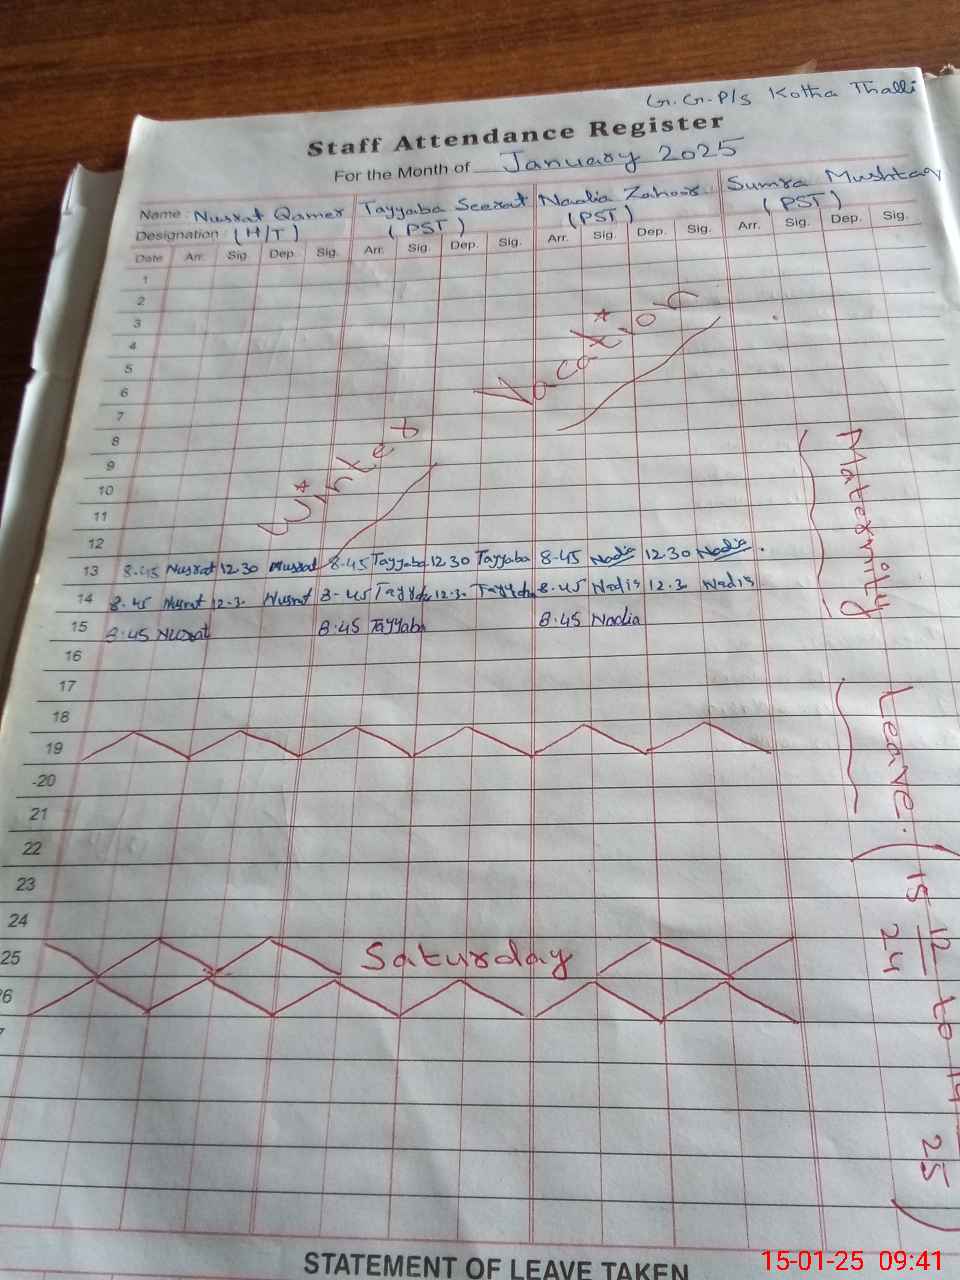 G.G.P/S Kotha Thalli
Staff Attendance Register
For the Month of January 2025
Name : Nusrat Qamer Tayyaba Seerat Nadia Zahoor Sumra Mushtaq
Designation : (H/T) (PST) (PST) (PST)
Date Arr. Sig. Dep. Sig. Arr. Sig. Dep. Sig. Arr. Sig. Dep. Sig. Arr. Sig. Dep. Sig.
1
2
3
4
5
6
7
8
9
10
11
12
Winter Vacation
13 8.45 Nusrat 12.30 Nusrat 8.45 Tayyaba 12.30 Tayyaba 8.45 Nadia 12.30 Nadia
14 8.45 Nusrat 12.3. Nusrat 8.45 Tayyaba 12.3. Tayyaba 8.45 Nadia 12.3. Nadia
15 8.45 Nusrat 8.45 Tayyaba 8.45 Nadia
16
17
18
19
20
21
22
23
24
25 Saturday
26
Maternity Leave. ( 15 12/24 to 14 /25 )
STATEMENT OF LEAVE TAKEN
15-01-25 09:41